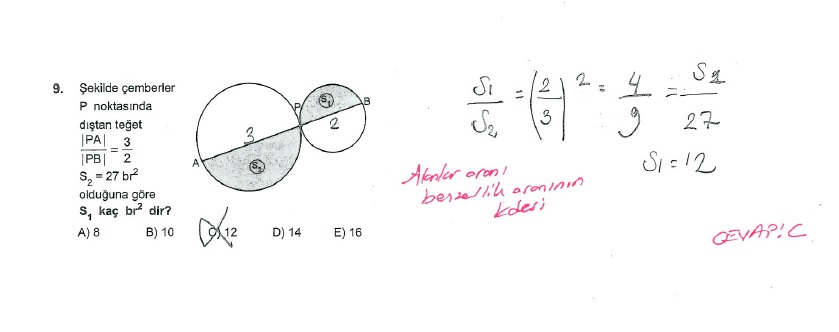 9. Şekilde çemberler
P noktasında
dıştan teğet
|PA| / |PB| = 3 / 2
S₂ = 27 br²
olduğuna göre
S₁ kaç br² dir?
A) 8 B) 10 C) 12 D) 14 E) 16
S₁
P
B
3
2
A
S₂
S₁ / S₂ = (2 / 3)² = 4 / 9 = S₁ / 27
S₁ = 12
Alanlar oranı
benzerlik oranının
karesi
CEVAP: C